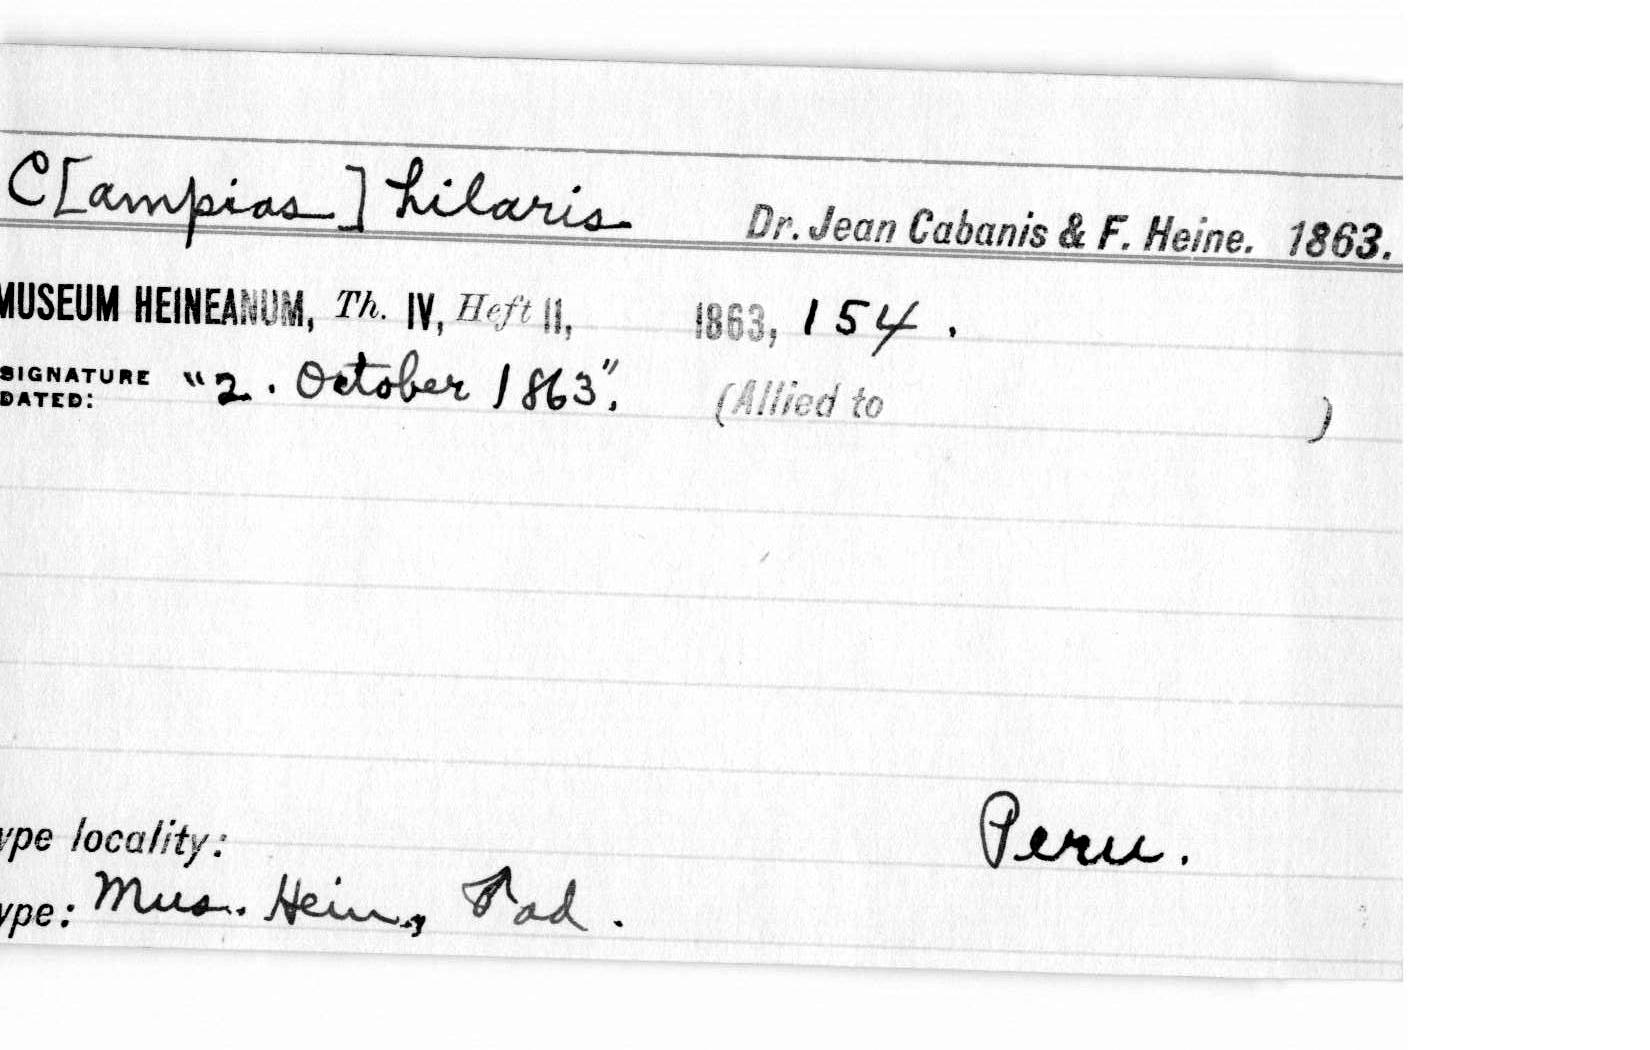 C[ampias] hilaris Dr. Jean Cabanis & F. Heine. 1863.
MUSEUM HEINEANUM, Th. IV, Heft II, 1863, 154.
SIGNATURE DATED: "2. October 1863".
(Allied to )
ype locality: Peru.
ype: Mus. Hein., ad.